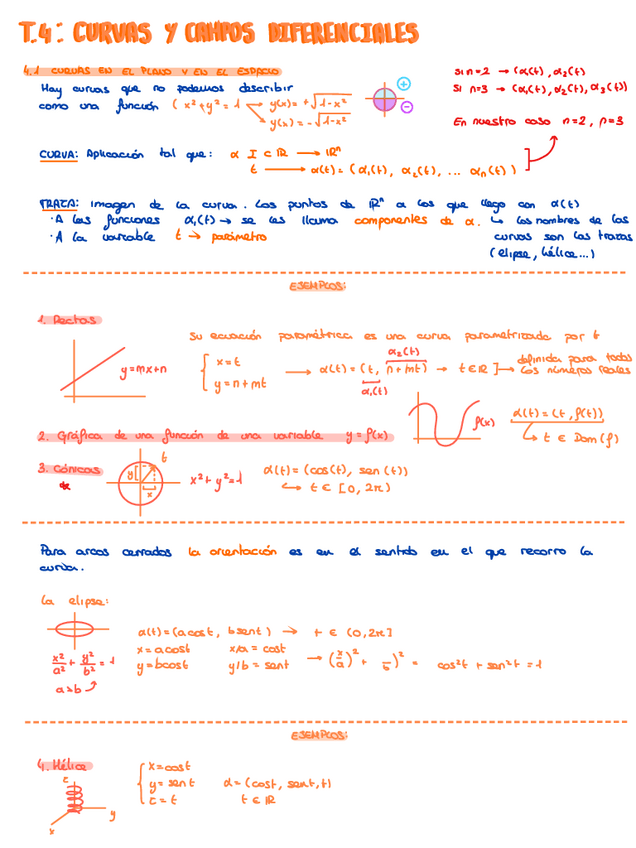 T.4: CURVAS Y CAMPOS DIFERENCIALES
4.1 CURVAS EN EL PLANO Y EN EL ESPACIO
Hay curvas que no podemos describir
como una función ( x²+y² = 1
y(x) = +√1-x²
y(x) = -√1-x²
+
-
Si n=2 → (α₁(t), α₂(t)
Si n=3 → (α₁(t), α₂(t), α₃(t))
En nuestro caso n=2, n=3
CURVA: Aplicación tal que: α I ⊂ ℝ → ℝⁿ
t → α(t) = (α₁(t), α₂(t), ... αₙ(t))
TRAZA: Imagen de la curva. Los puntos de ℝⁿ a los que llego con α(t)
· A las funciones α₁(t) → se les llama componentes de α.
· A la variable t → parámetro
↳ los nombres de las
curvas son las trazas
(elipse, hélice...)
EJEMPLOS:
1. Rectas
y=mx+n
Su ecuación paramétrica es una curva parametrizada por t
{ x=t
y=n+mt
→ α(t) = (t, n+mt) → t∈ℝ ] → definida para todos
los números reales
α₂(t)
α₁(t)
2. Gráfica de una función de una variable y=f(x)
f(x)
α(t) = (t, f(t))
↳ t ∈ Dom(f)
3. Cónicas
de
t
y
x
x²+y²=1
α(t) = (cos(t), sen(t))
↳ t ∈ [0, 2π)
Para arcos cerrados la orientación es en el sentido en el que recorro la
curva.
La elipse:
x²/a² + y²/b² = 1
a>b
α(t) = (a cost, b sent) → t ∈ (0,2π]
x=acost x/a = cost
y=bcost y/b = sent
→ (x/a)² + /b)² = cos²t + sen²t = 1
EJEMPLOS:
4. Hélice
z
y
x
{ x=cost
y=sent
z=t
α = (cost, sent, t)
t ∈ ℝ